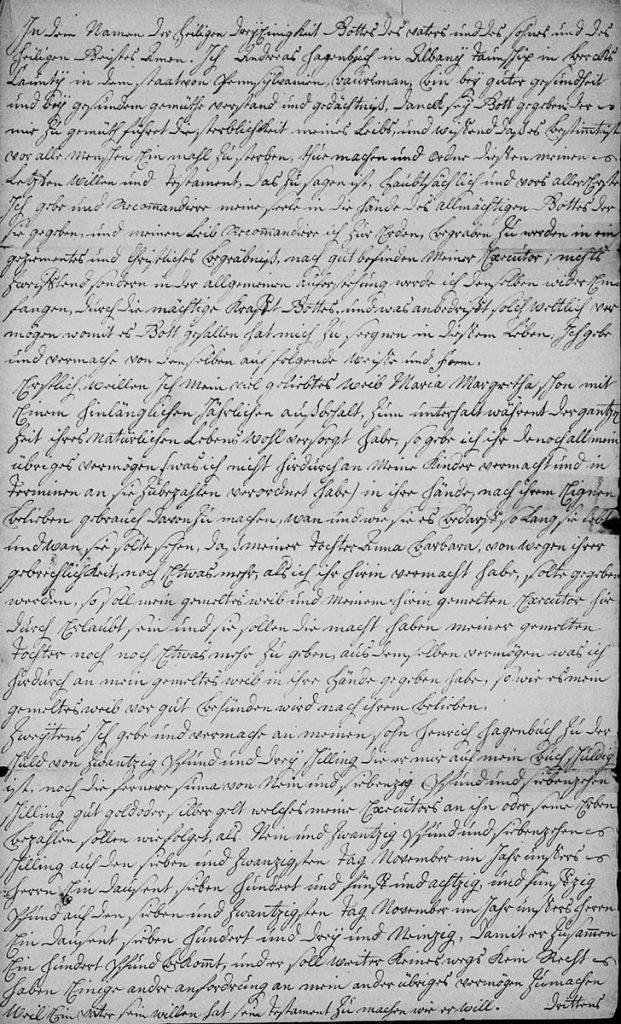 In dem Namen der heiligen dreyEinigkeit Gottes des vaters und des sohnes und des
heiligen Geistes Amen. Ich Andereas Hagenbuch in Albany Taunschip in Bercks
Caunty in dem staat von Pennsylvanien, bauersman, bin bey guter gesundheit
und bey gesundem gemüthe verstand und gedächtniß, danck sey Gott gegeben der
mir zu gemüth führet die sterblichkeit meines Leibs, und wissend daß es bestimmt ist
vor alle menschen Ein mahl zu sterben, thue machen und ordne diesen meinen
Letzten willen und Testament, das zu sagen ist, haubtsächlich und vors aller Erste
Ich gebe und Recomandiere meine seele in die hände des allmächtigen Gottes der
sie gegeben, und meinen Leib Recomandiere ich zur Erden, begraben zu werden in ein
geziementes und christliches begräbniß, nach gut befinden meiner Executor; nichts
zweifflend sondern in der allgemeinen auferstehung werde ich denselben wider Em
fangen, durch die mächtige Krafft Gottes, und was anbedrifft solch weltlich ver
mögen womit es Gott gefallen hat mich zu seegnen in diesem Leben, Ich gebe
und vermache von denselben auf folgende weisse und form.
Erstlich, weillen Ich mein viel geliebtes weib Maria Margretha schon mit
Einem hinlänglichen Jährlichen außbehalt, zum unterhalt währent der gantzen
zeit ihres natürlichen Lebens wohl versorgt habe, so gebe ich ihr denoch all mein
übriges vermögen (was ich nicht hirdurch an meine Kinder vermacht und in
Terminen an sie zu bezahlen verordnet habe) in ihre hände, nach ihrem Eignen
belieben gebrauch davon zu machen, wan und wie sie es bedarf so lang sie lebt
und wan sie solte sehen, daß meiner tochter Anna Barbara, von wegen ihrer
gebrechlichkeit, noch Etwas mehr, als ich ihr hirin vermacht habe, solte gegeben
werden, so soll mein gemeltes weib und meinen hirin gemelten Executor hir
durch Erlaubt sein und sie sollen die macht haben meiner gemelten
tochter noch noch Etwas mehr zu geben, aus demselben vermögen was ich
hirdurch an mein gemeltes weib in ihre hände gegeben habe, so wie es mein
gemeltes weib vor gut befünden wird nach ihrem belieben.
Zweytens Ich gebe und vermache an meinen sohn Henrich Hagenbuch zu der
schuld von zwantzig pfund und drey schilling die er mir auf mein buch schuldig
ist, noch die fernere suma von Nein und siebenzig pfund und siebenzehen
schilling gut gold oder silber gelt welches meine Executors an ihn oder seine Erben
bezahlen sollen wie folget, als Nein und zwantzig pfund und siebenzehen
schilling auf den sieben und zwanzigsten tag November im Jahr unsers
herrn Ein dausent sieben hundert und fünff und achtzig, und fünffzig
pfund auf den sieben und zwantzigsten tag November im Jahr unsers herrn
Ein dausent sieben hundert und drey und Neinzig, damit er zusammen
Ein hundert pfund bekomt, und er soll weiter keines wegs kein Recht
haben Einige andre anfordrung an mein anderübriges vermögen zu machen
weil Ein vater sein willen hat sein Testament zu machen wie er will. Drittens